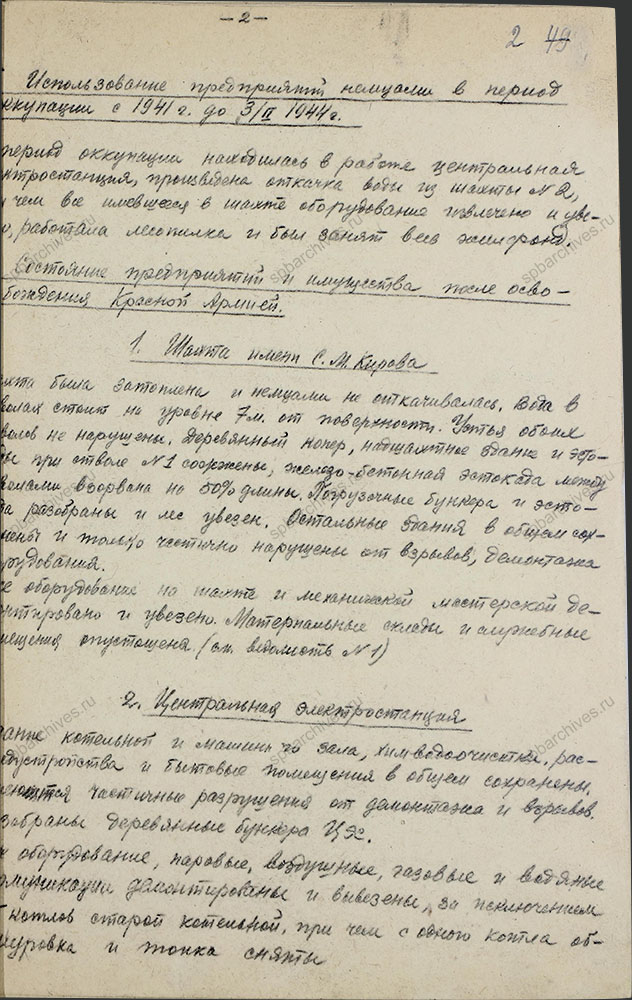 — 2 —
2 49
Использование предприятий немцами в период
ккупации с 1941 г. до 3/II 1944 г.
период оккупации находилась в работе центральная
ктростанция, произведена откачка воды из шахты № 2,
чем все имевшееся в шахте оборудование извлечено и уве-
о, работала лесопилка и был занят весь жилфонд.
Состояние предприятий и имущества после осво-
бождения Красной Армией.
1. Шахта имени С. М. Кирова
ахта была затоплена и немцами не откачивалась. Вода в
волах стоит на уровне 7 м. от поверхности. Устья обоих
волов не нарушены. Деревянный копер, надшахтное здание и эсто-
ды при стволе № 1 сожжены, железо-бетонная эстокада между
волами взорвана на 50% длины. Погрузочные бункера и эсто-
да разобраны и лес увезен. Остальные здания в общем сох-
нены и только частично нарушены от взрывов, демонтажа
рудования.
се оборудование на шахте и механической мастерской де-
онтировано и увезено. Материальные склады и служебные
мещения опустошена. (см. ведомость № 1)
2. Центральная электростанция
дание котельной и машинного зала, химводоочистки, рас-
едустройства и бытовые помещения в общем сохранены.
еются частичные разрушения от демонтажа и взрывов.
зобраны деревянные бункера ЦЭС.
оборудование, паровые, воздушные, газовые и водяные
оммуникации демонтированы и вывезены, за исключением
котлов старой котельной, при чем с одного котла об-
муровка и топка сняты
spbarchives.ru